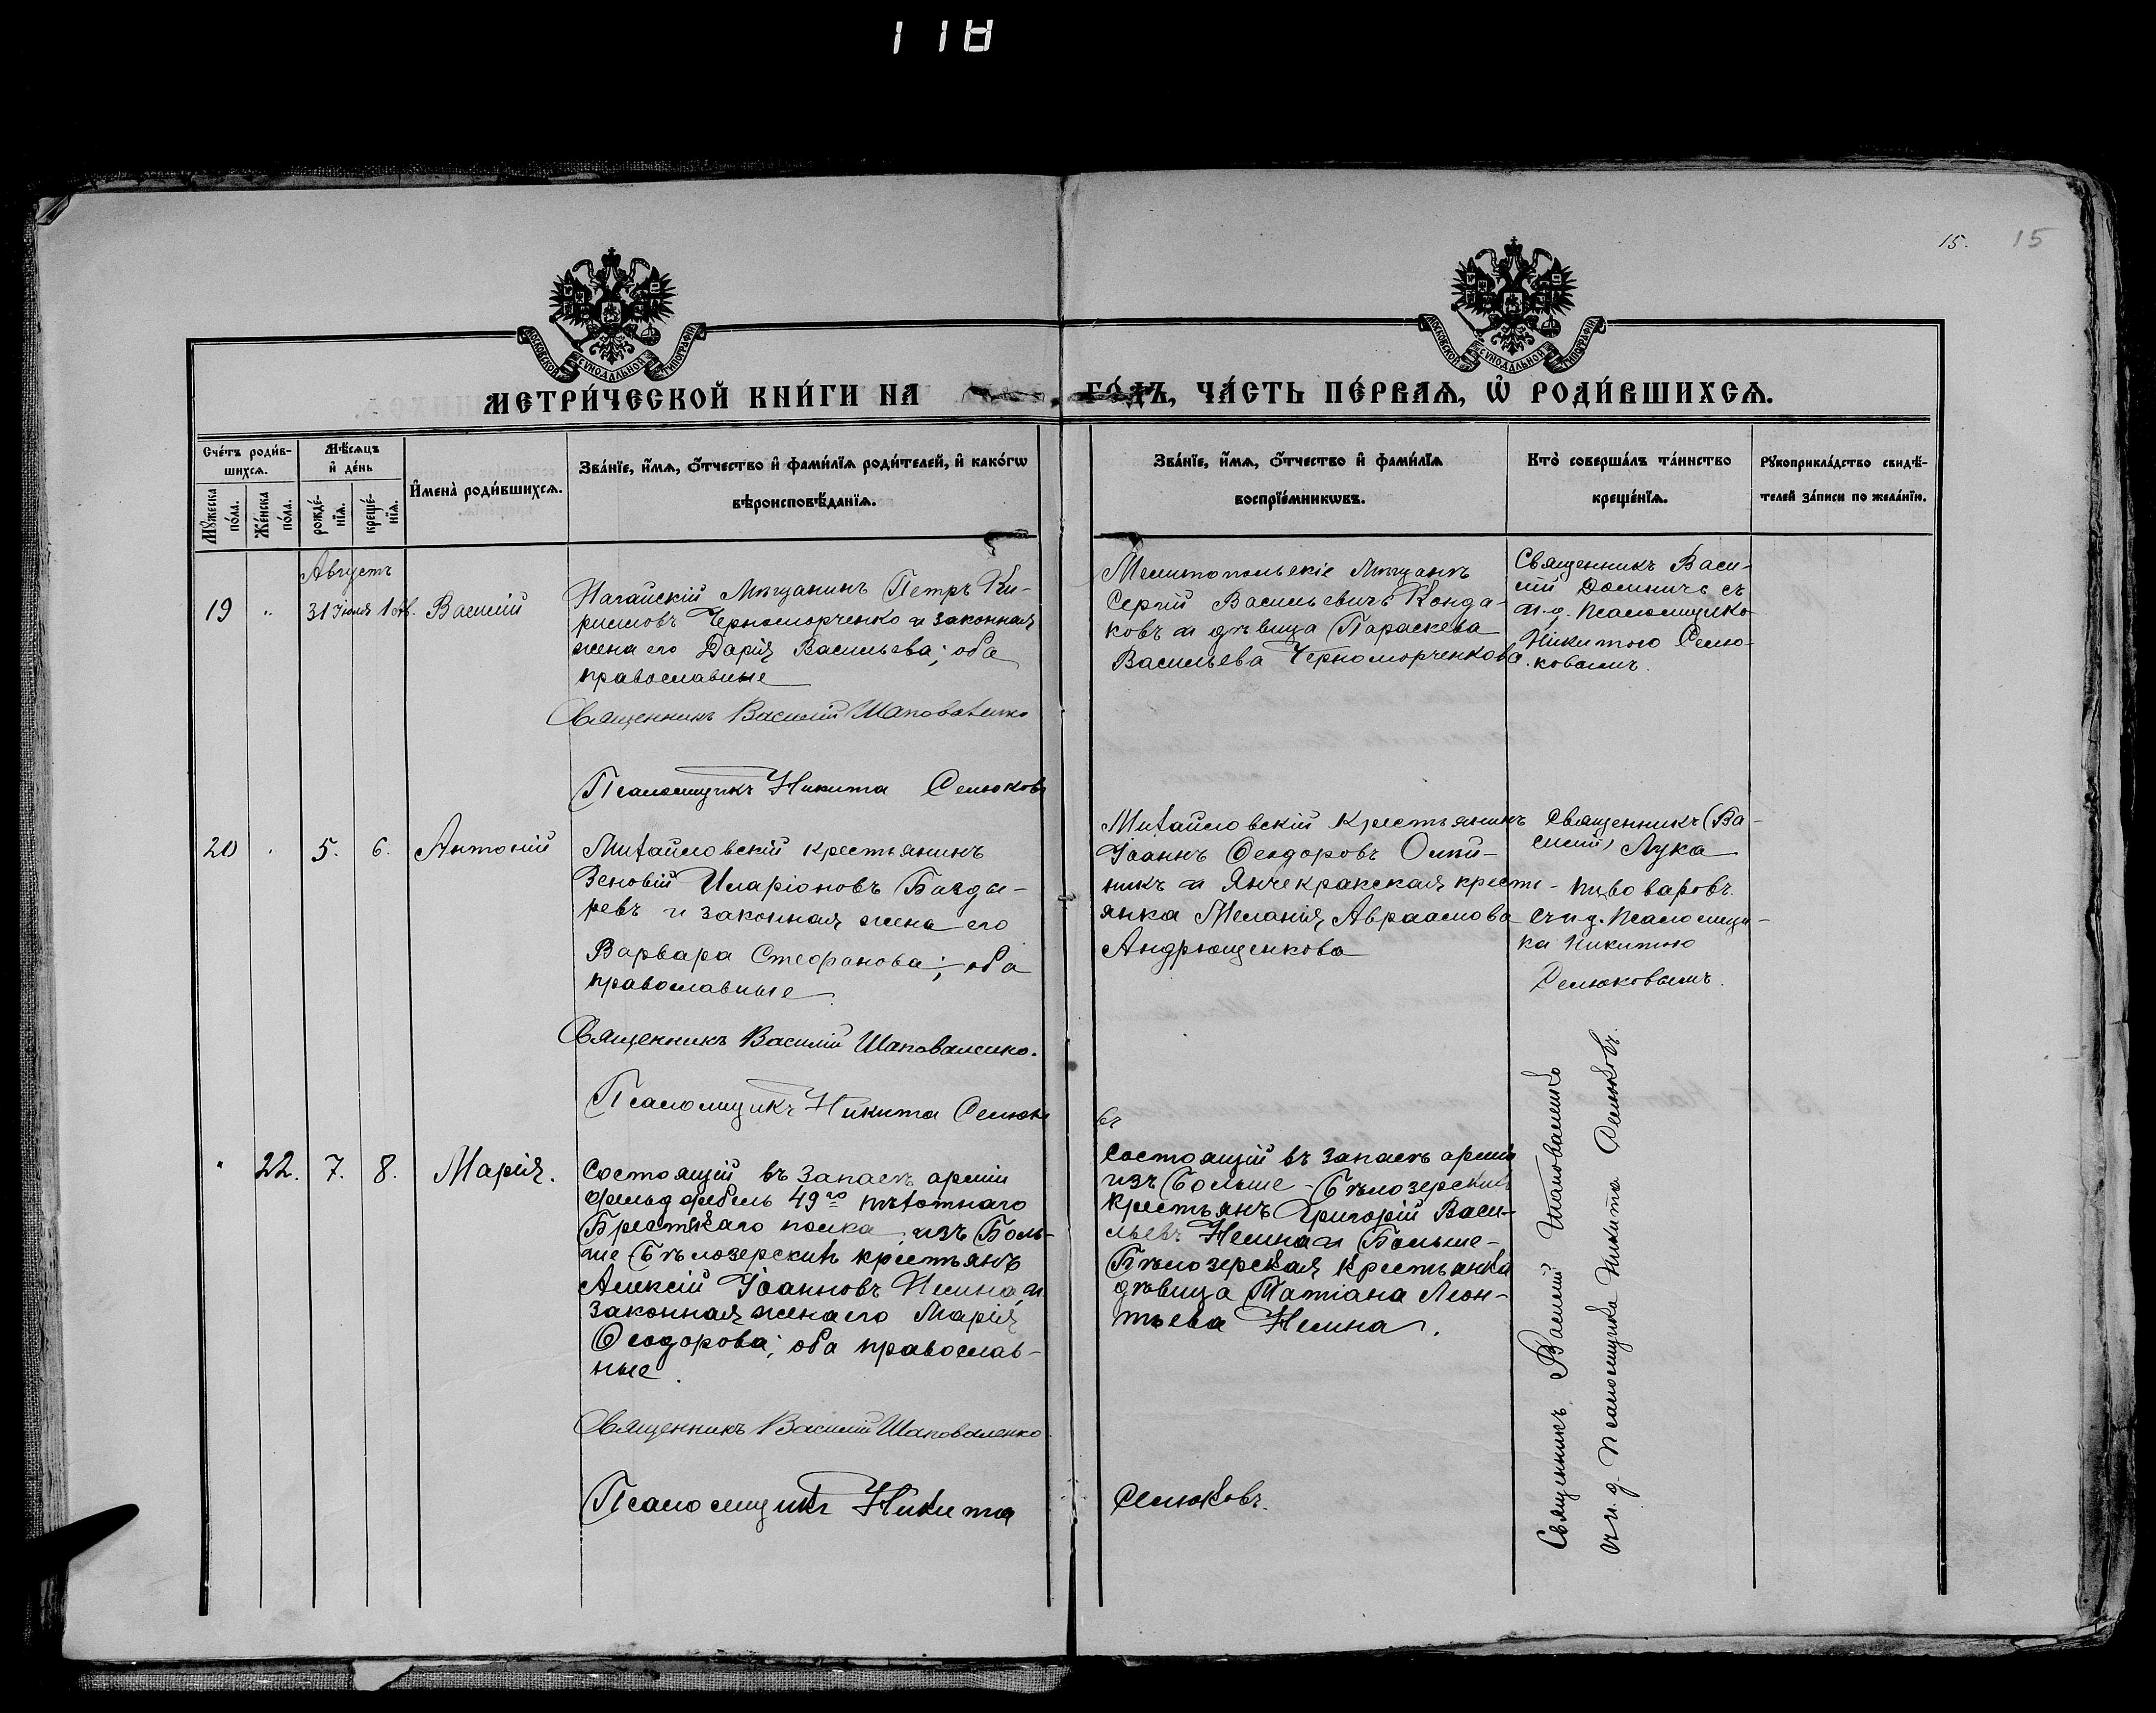 118
15. 15
МОСКОВСКОЙ СѴНОДАЛЬНОЙ ТИПОГРАФІИ
МОСКОВСКОЙ СѴНОДАЛЬНОЙ ТИПОГРАФІИ
МЕТРИ́ЧЕСКОЙ КНИ́ГИ НА ГО́ДЪ, ЧА́СТЬ ПЕ́РВАѦ, Ѡ҆ РОДИ́ВШИХСѦ.
Сче́тъ роди́в-
шихсѧ.
Мѹ́жеска по́ла.
Же́нска по́ла.
Мѣ́сѧцъ
и҆ де́нь
рожде́-
нїѧ.
креще́-
нїѧ.
И҆мена̀ роди́вшихсѧ.
Зва́нїе, и҆́мѧ, ѻ҆́тчество и҆ фами́лїѧ роди́телей, и҆ како́гѡ
вѣроисповѣ́данїѧ.
Зва́нїе, и҆́мѧ, ѻ҆́тчество и҆ фами́лїѧ
воспрїе́мникѡвъ.
Кто̀ соверша́лъ та́инство
креще́нїѧ.
Рѹкоприкла́дство свидѣ́-
телей за́писи по жела́нїю.
Августъ
19 " 31 Іюля 1 Ав. Василій
Нагайскій Мѣщанинъ Петръ Ки-
рилловъ Черноморченко и законная
жена его Дарія Васильева; оба
православные
Священникъ Василій Шаповаленко
Псаломщикъ Никита Селюковъ
Мелитопольскіе Мѣщане
Сергій Васильевичъ Конда-
ковъ и дѣвица Параскева
Васильева Черноморченкова.
Священникъ Васи-
лій съ
и.д. Псаломщика
Никитою Селю-
ковымъ.
20 " 5. 6. Антоній
Михайловскій крестьянинъ
Зеновій Иларіоновъ
и законная жена его
Варвара Стефанова; оба
православные
Священникъ Василій Шаповаленко.
Псаломщикъ Никита Селюко
въ
Михайловскій Крестьянинъ
Іоаннъ Ѳеодоровъ Олій-
никъ и Янчекракская кресть-
янка Меланія Авраамова
Андрющенкова
Священникъ (Ва-
силій) Лука
Пивоваровъ
съ и.д. Псаломщи-
ка Никитою
Селюковымъ.
" 22. 7. 8. Марія.
Состоящій въ запасѣ арміи
фельдфебель 49го пѣхотнаго
Брестскаго полка, изъ Боль-
ше Бѣлозерскихъ крестьянъ
Алексій Іоанновъ Нелина и
законная жена его Марія
Ѳеодорова; оба православ-
ные.
Священникъ Василій Шаповаленко.
Псаломщикъ Никита
Селюковъ.
Состоящій въ запасѣ арміи
изъ Больше-Бѣлозерскихъ
крестьянъ Григорій Васи-
льевъ Нелина и Больше-
Бѣлозерская крестьянка
дѣвица Татіана Леон-
тьева Нелина.
Священникъ Василій Шаповаленко
съ и.д. Псаломщика Никита Селюковъ.